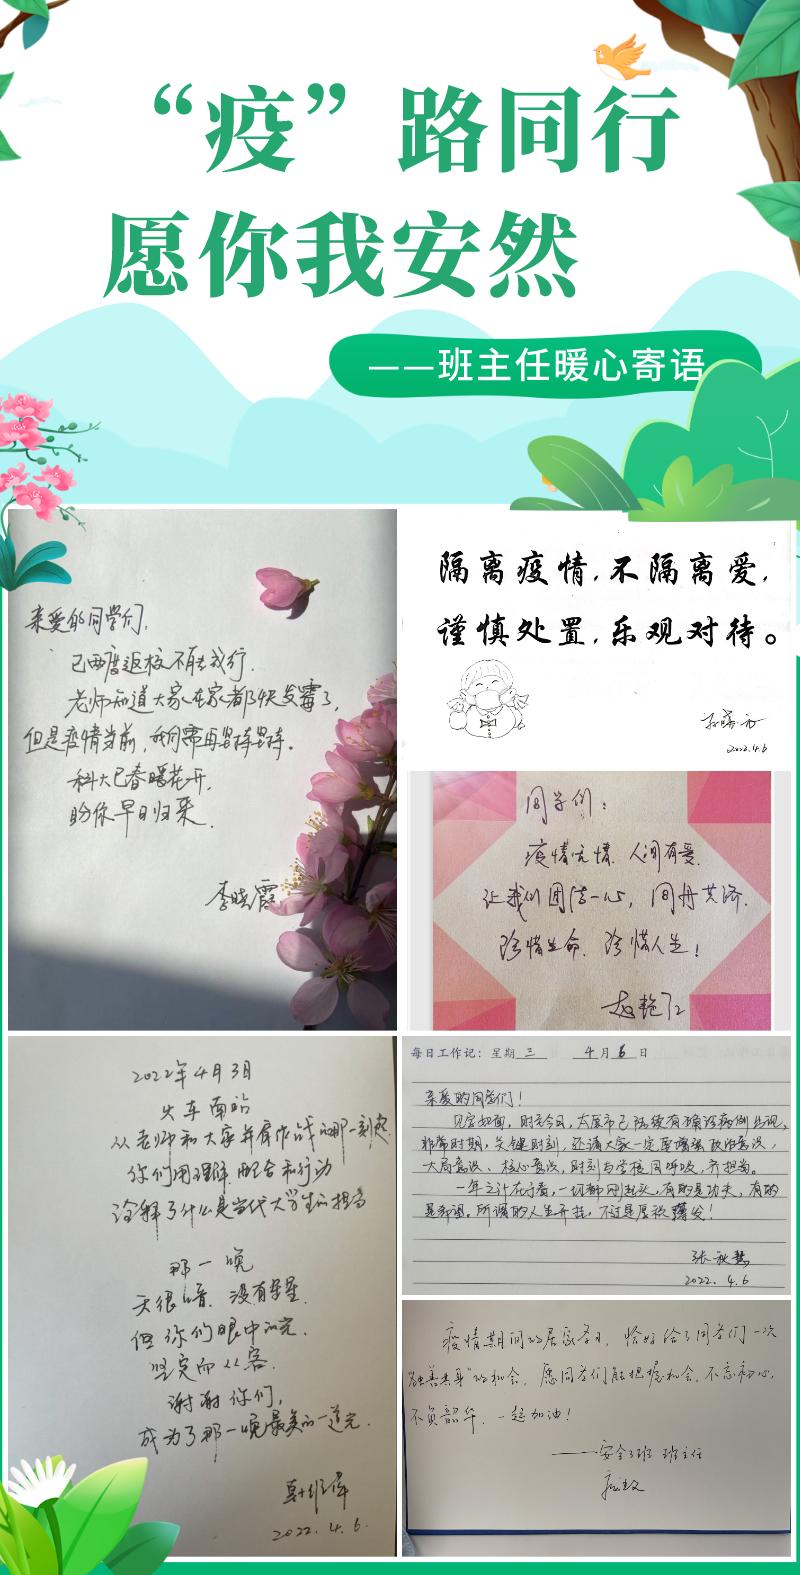 “疫”路同行
愿你我安然
——班主任暖心寄语
亲爱的同学们,
已两度返校不能成行.
老师知道大家在家都快发霉了,
但是疫情当前,我们需再坚持坚持.
科大已春暖花开,
盼你早日归来.
李晓霞
隔离疫情,不隔离爱,
谨慎处置,乐观对待。
2022.4.6
同学们:
疫情无情.人间有爱.
让我们团结一心,同舟共济.
珍惜生命.珍惜人生!
赵艳红
2022年4月3日
火车南站
从老师和大家并肩作战的那一刻起
你们用理解.配合和行动
诠释了什么是当代大学生的担当
那一晚
天很暗.没有星星.
但你们眼中的光.
坚定而从容.
谢谢你们,
成为了那一晚最美的一道光.
2022.4.6.
每日工作记: 星期 三 4月6日
亲爱的同学们!
见字如面,时至今日,太原市已陆续有确诊病例出现,
非常时期,关键时刻,还请大家一定要增强政治意识,
大局意识、核心意识,时刻与学校同呼吸,齐担当。
一年之计在于春,一切都刚起头,有的是功夫,有的
是希望。所谓的人生开挂,不过是厚积薄发!
张秋慧
2022.4.6
疫情期间的居家学习,恰好给了同学们一次
“独善其身”的机会.愿同学们能把握机会.不忘初心,
不负韶华.一起加油!
——安全3班 班主任